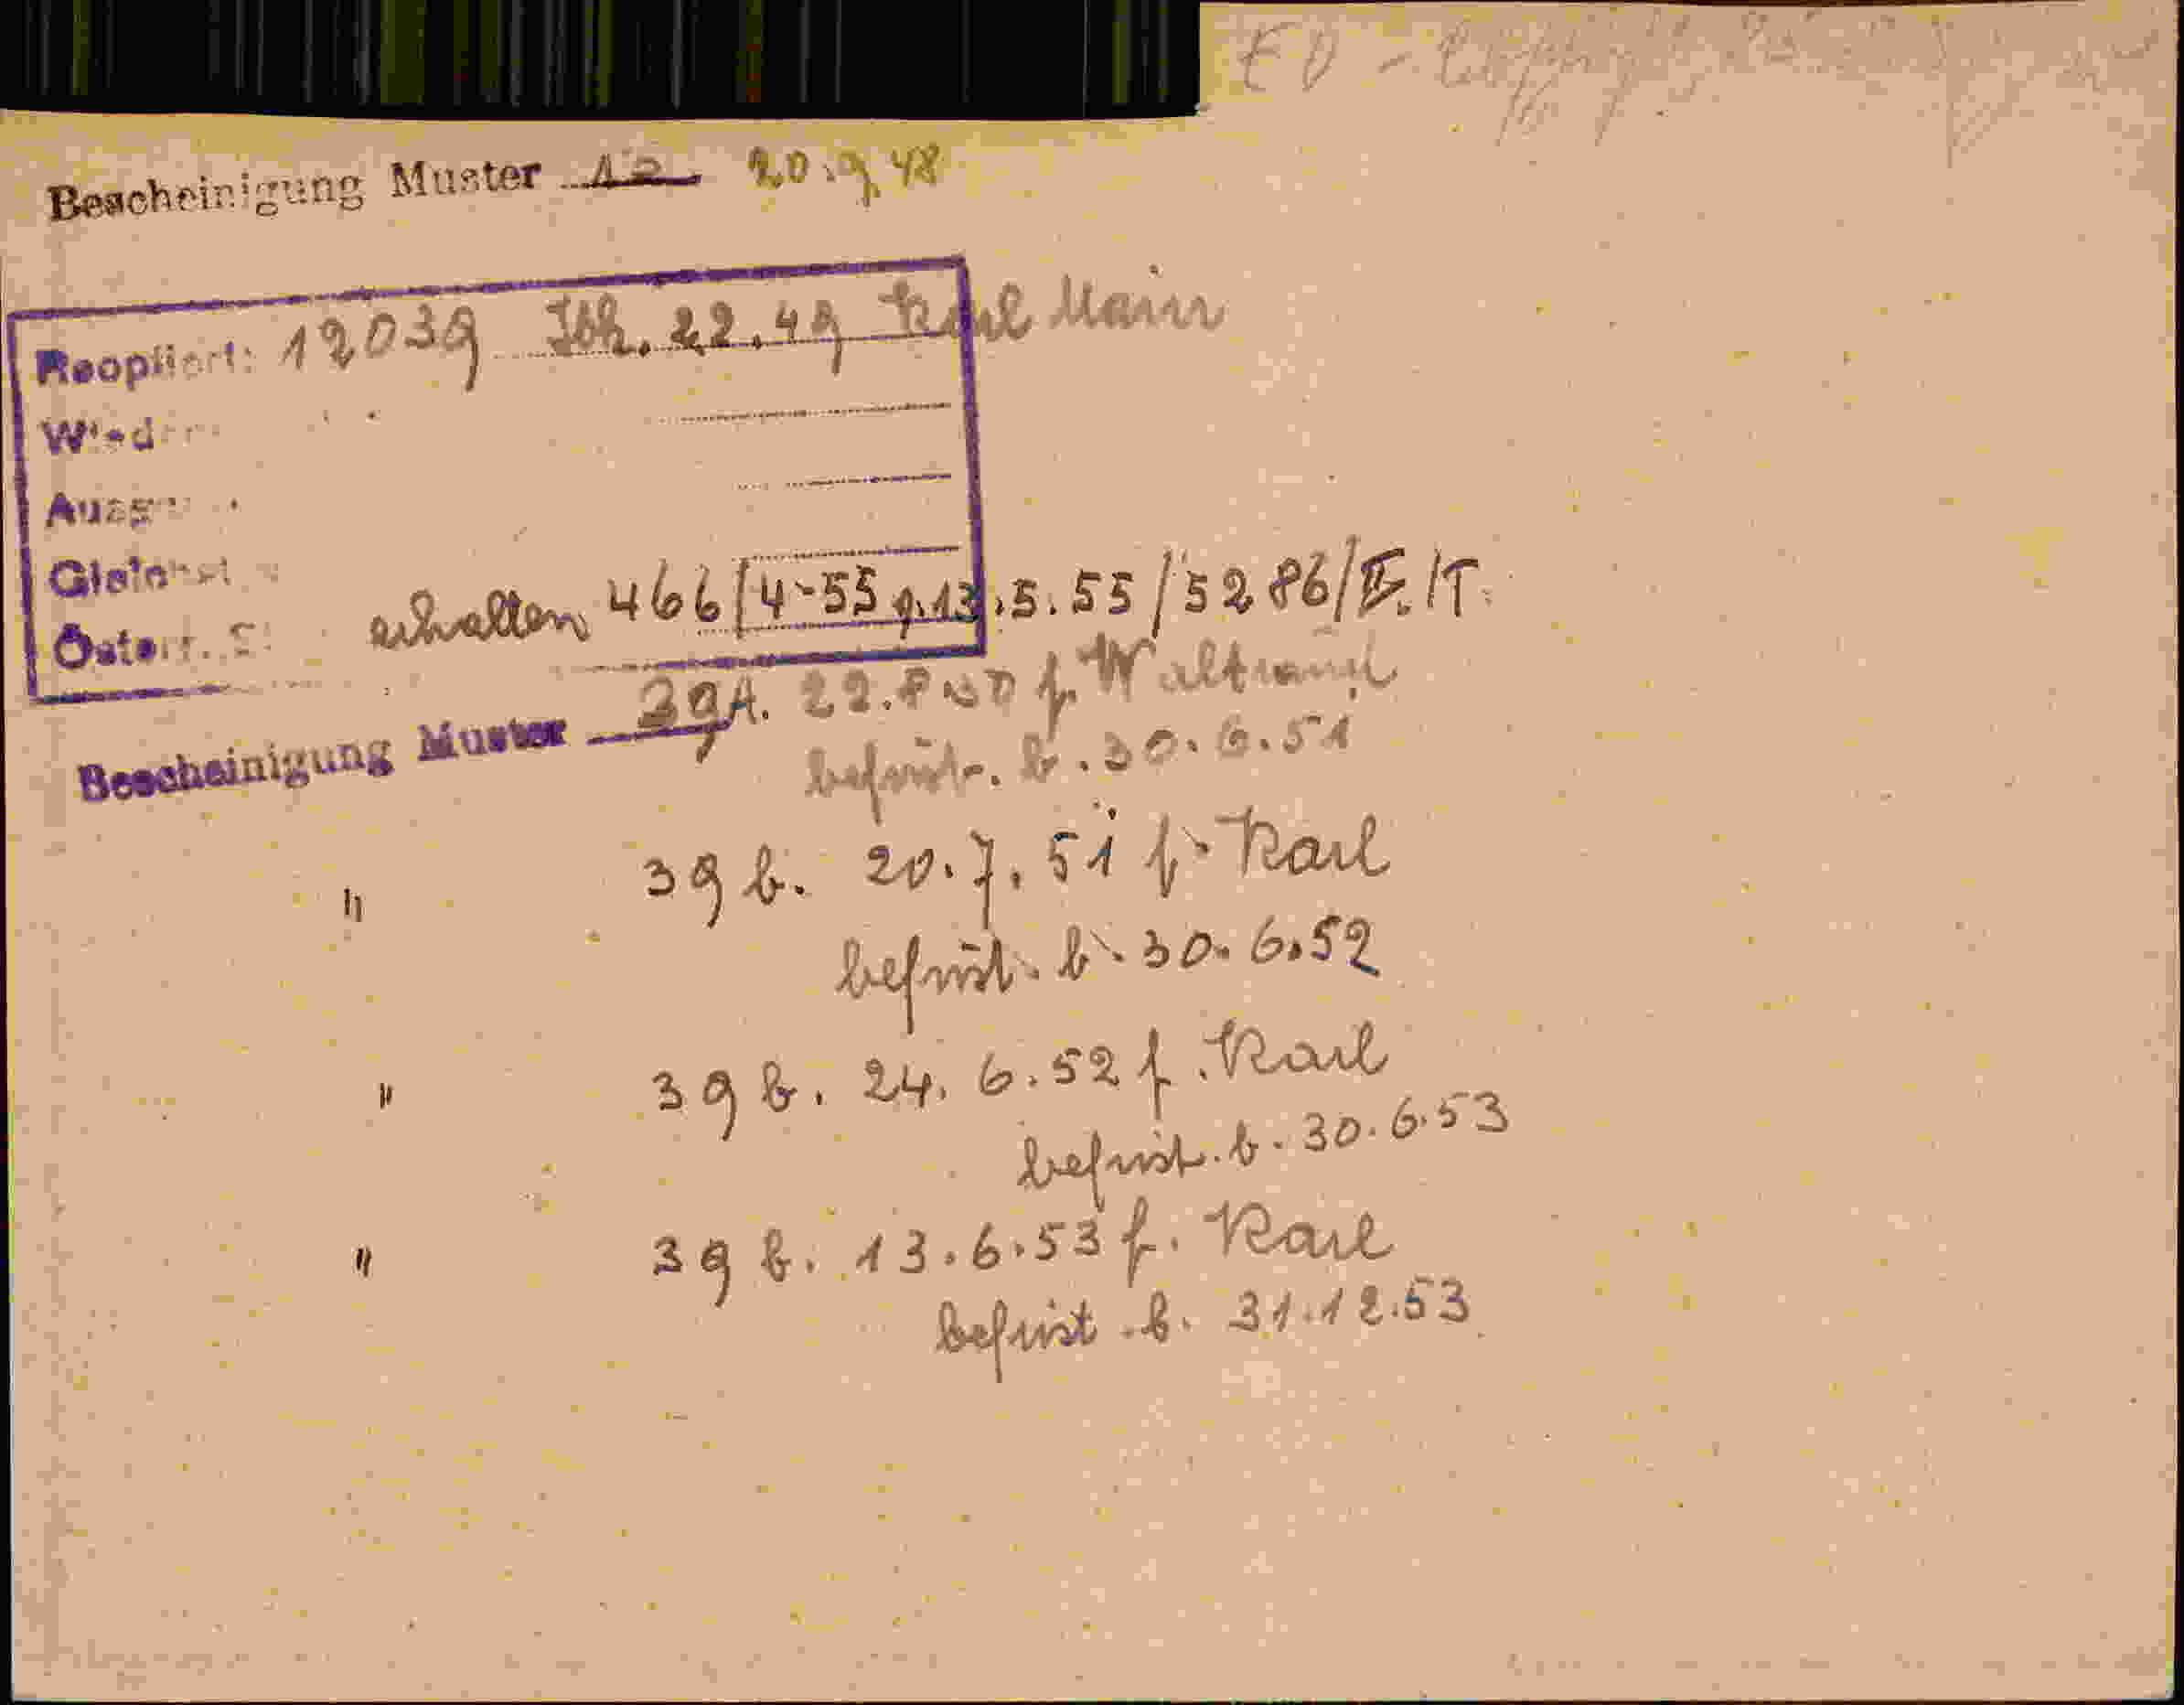 Bescheinigung Muster 12 20.9.48
Reopliert: 12039 Jbh. 22.49 Karl Mair
erhalten 466/4-55 v. 13.5.55/5286/II./T.
Bescheinigung Muster 39A. 22.8.50 f. Waltraud
befrist. b. 30.6.51
" 39 b. 20.7.51 f. Karl
befrist. b. 30.6.52
" 39 b. 24.6.52 f. Karl
befrist. b. 30.6.53
" 39 b. 13.6.53 f. Karl
befrist. b. 31.12.53